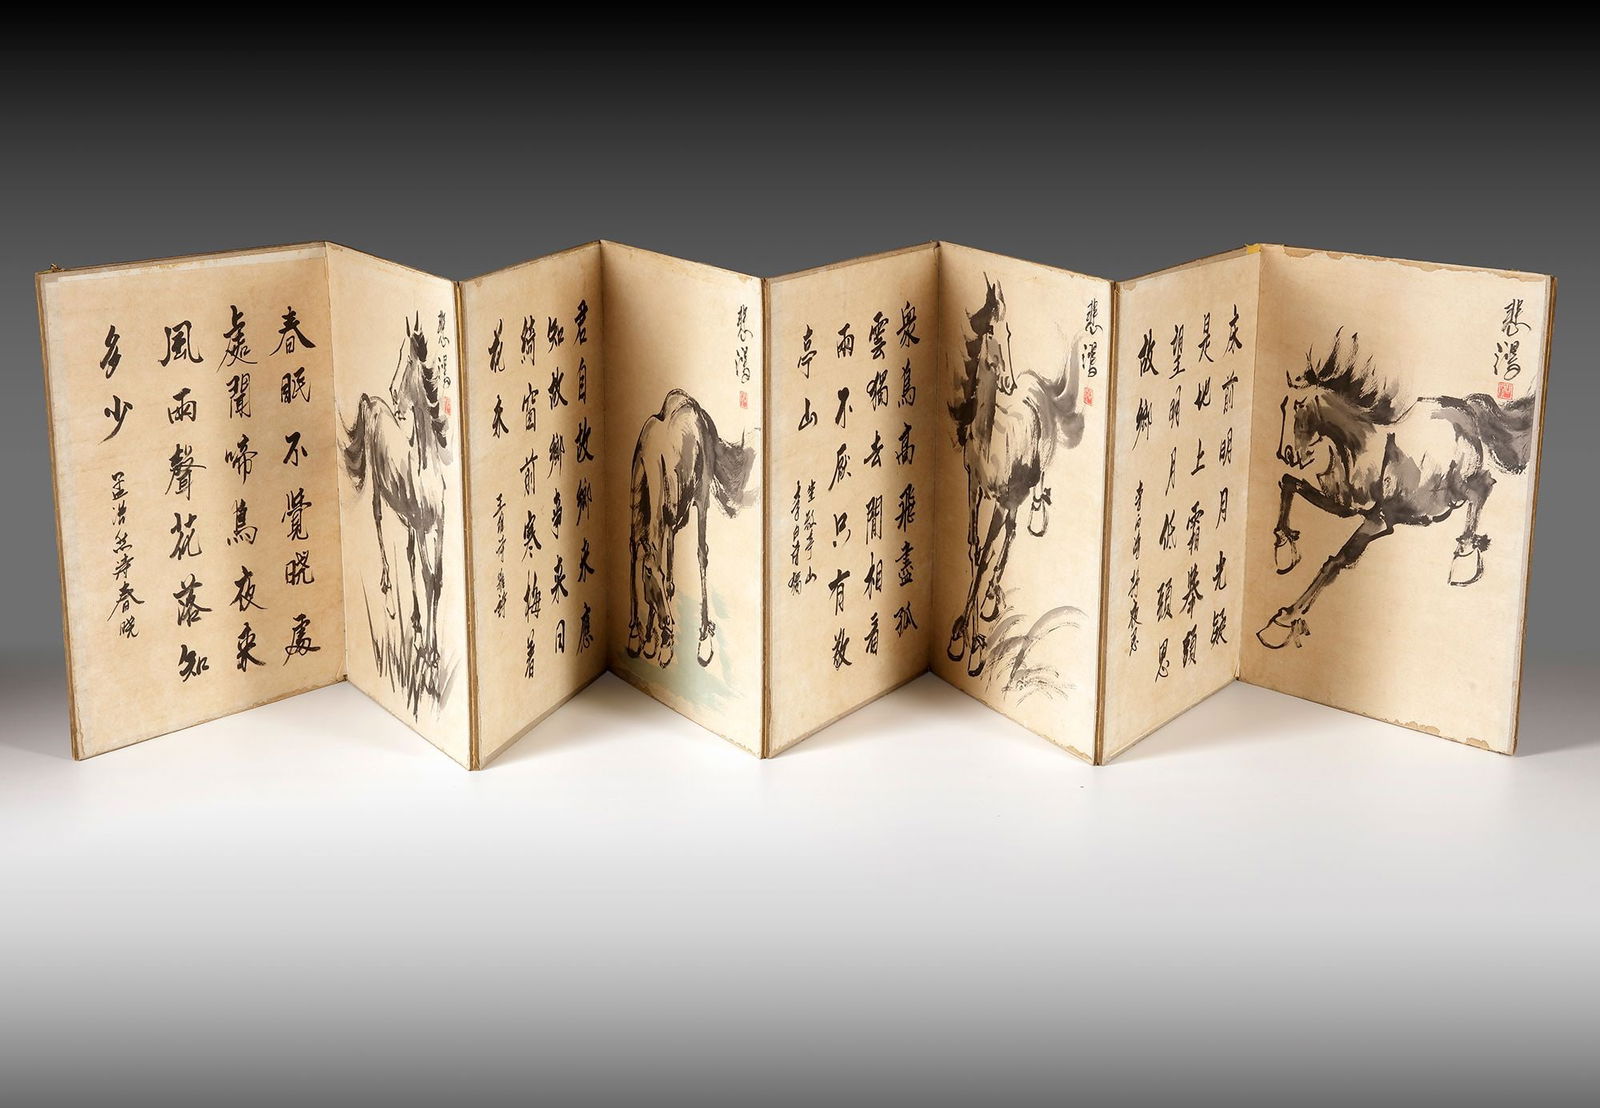 悲鴻
床前明月光疑
是地上霜舉頭
望明月低頭思
故鄉
李白詩静夜思
悲鴻
衆鳥高飛盡孤
雲獨去閒相看
兩不厭只有敬
亭山
李白詩獨
坐敬亭山
悲鴻
君自故鄉來應
知故鄉事來日
綺窗前寒梅着
花未
王維詩雜詩
悲鴻
春眠不覺曉處
處聞啼鳥夜來
風雨聲花落知
多少
孟浩然詩春曉